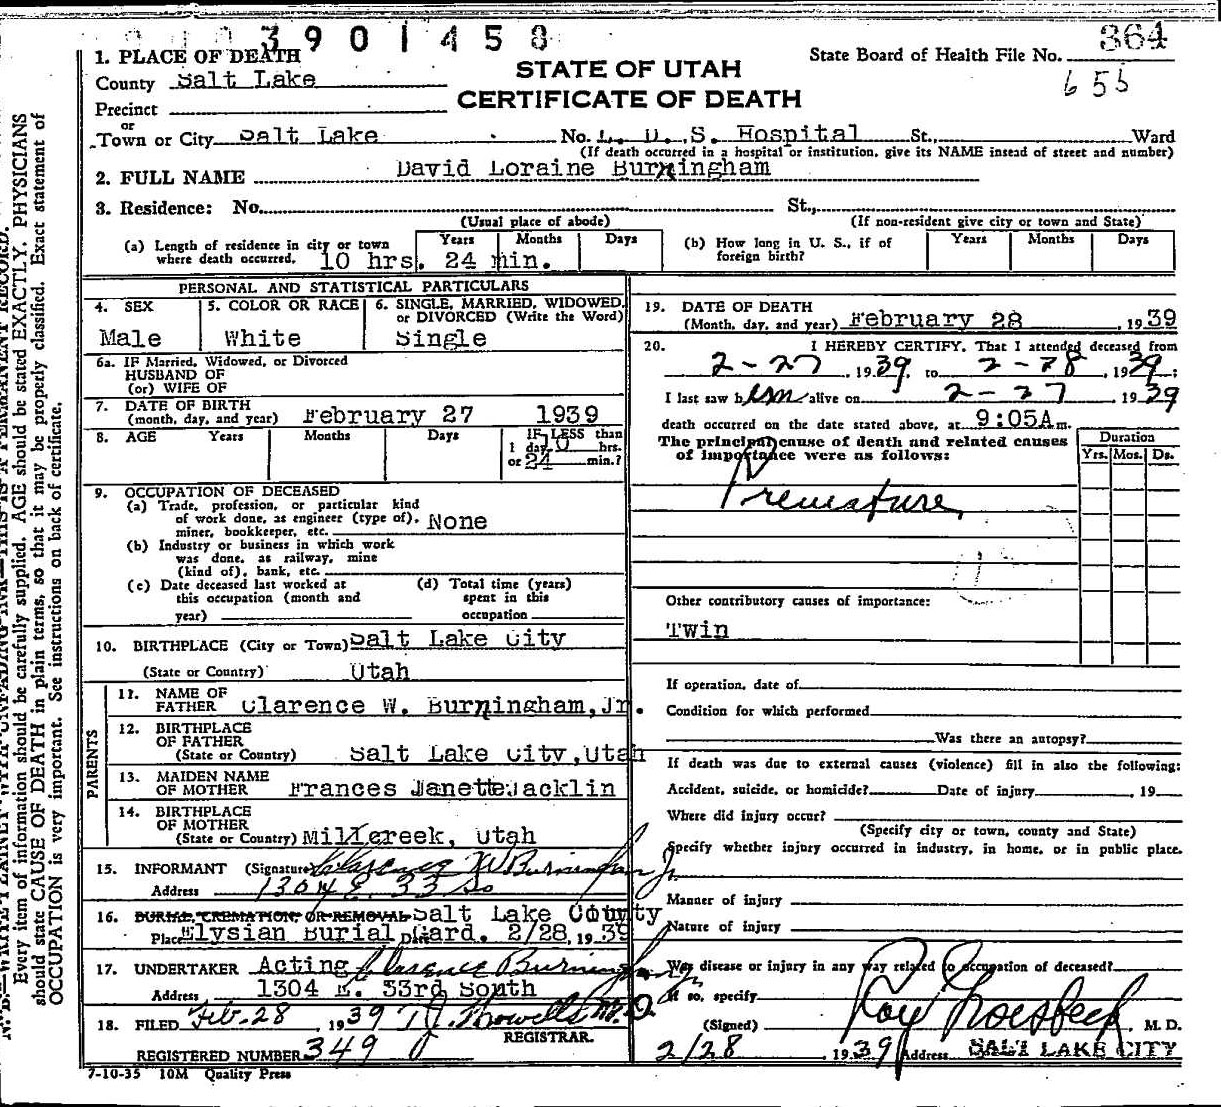 3901458
364
1. PLACE OF DEATH
State Board of Health File No.
655
County Salt Lake
STATE OF UTAH
CERTIFICATE OF DEATH
Precinct
or
Town or City Salt Lake No. L. D. S. Hospital St., Ward
(If death occurred in a hospital or institution, give its NAME insead of street and number)
2. FULL NAME David Loraine Burningham
3. Residence: No. St.,
(Usual place of abode) (If non-resident give city or town and State)
(a) Length of residence in city or town where death occurred. Years Months Days
10 hrs. 24 min.
(b) How long in U. S., if of foreign birth? Years Months Days
PERSONAL AND STATISTICAL PARTICULARS
4. SEX 5. COLOR OR RACE 6. SINGLE, MARRIED, WIDOWED, or DIVORCED (Write the Word)
Male White Single
6a. IF Married, Widowed, or Divorced
HUSBAND OF
(or) WIFE OF
7. DATE OF BIRTH
(month, day, and year) February 27 1939
8. AGE Years Months Days IF LESS than
1 day 10 hrs.
or 24 min.?
9. OCCUPATION OF DECEASED
(a) Trade, profession, or particular kind
of work done, as engineer (type of), None
miner, bookkeeper, etc.
(b) Industry or business in which work
was done, as railway, mine
(kind of), bank, etc.
(c) Date deceased last worked at (d) Total time (years)
this occupation (month and spent in this
year) occupation
10. BIRTHPLACE (City or Town) Salt Lake City
(State or Country) Utah
PARENTS
11. NAME OF
FATHER Clarence W. Burningham, Jr.
12. BIRTHPLACE
OF FATHER
(State or Country) Salt Lake City, Utah
13. MAIDEN NAME
OF MOTHER Frances Janette Jacklin
14. BIRTHPLACE
OF MOTHER
(State or Country) Millcreek, Utah
15. INFORMANT (Signature) Clarence W Burningham Jr.
Address 1304 E. 33 So
16. BURIAL, CREMATION, OR REMOVAL Salt Lake County
Place Elysian Burial Gard. Date 2/28, 1939
17. UNDERTAKER Acting Clarence Burningham Jr.
Address 1304 E. 33rd South
18. FILED Feb-28, 1939 T. J. Howells M. D.
REGISTRAR.
REGISTERED NUMBER 349
7-10-35 10M Quality Press
19. DATE OF DEATH
(Month, day, and year) February 28, 1939
20. I HEREBY CERTIFY, That I attended deceased from
2-27, 1939, to 2-28, 1939;
I last saw him alive on 2-27, 1939
death occurred on the date stated above, at 9:05A m.
The principal cause of death and related causes
of importance were as follows:
Duration
Yrs. Mos. Ds.
Premature
Other contributory causes of importance:
Twin
If operation, date of
Condition for which performed
Was there an autopsy?
If death was due to external causes (violence) fill in also the following:
Accident, suicide, or homicide? Date of injury, 19
Where did injury occur?
(Specify city or town, county and State)
Specify whether injury occurred in industry, in home, or in public place.
Manner of injury
Nature of injury
Was disease or injury in any way related to occupation of deceased?
If so, specify
(Signed) Roy Groesbeck, M. D.
2/28, 1939 Address SALT LAKE CITY
Every item of information should be carefully supplied. AGE should be stated EXACTLY. PHYSICIANS
should state CAUSE OF DEATH in plain terms, so that it may be properly classified. Exact statement of
OCCUPATION is very important. See instructions on back of certificate.